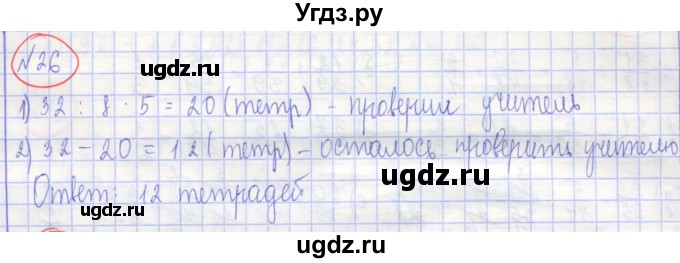 Угдз.ру
№26
ugdz.ru
1) 32 : 8 · 5 = 20 (тетр) - проверил учитель
2) 32 - 20 = 12 (тетр) - осталось проверить учителю
ugdz.ru
Ответ: 12 тетрадей
ugdz.ru
ugdz.ru